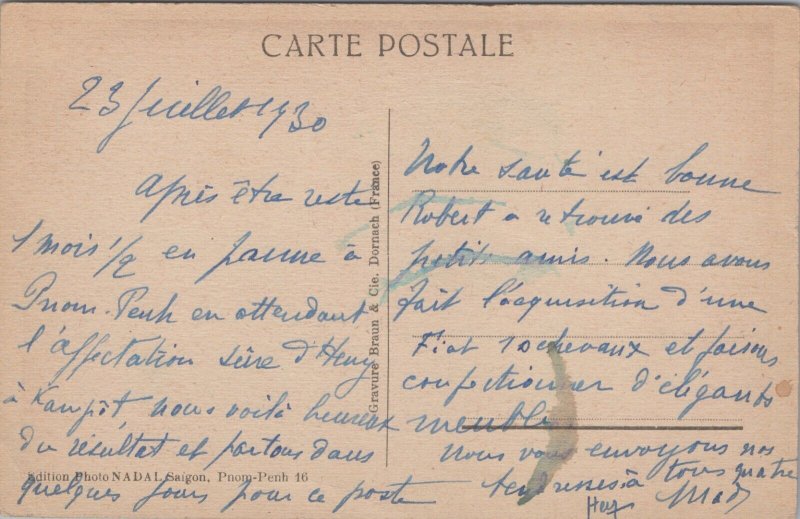 CARTE POSTALE
23 Juillet 1930
Après être resté
1 mois 1/2 en panne à
Pnom-Penh en attendant
l'affectation sûre d'Henry
à Kampôt nous voilà heureux
du résultat et partons dans
quelques jours pour ce poste
Edition Photo NADAL Saïgon, Pnom-Penh 16
Gravure Braun & Cie, Dornach (France)
Notre santé est bonne
Robert a retrouvé des
petits amis. Nous avons
fait l'acquisition d'une
Fiat 10 chevaux et faisons
confectionner d'élégants
meubles
Nous vous envoyons nos
tendresses à tous quatre
Mad